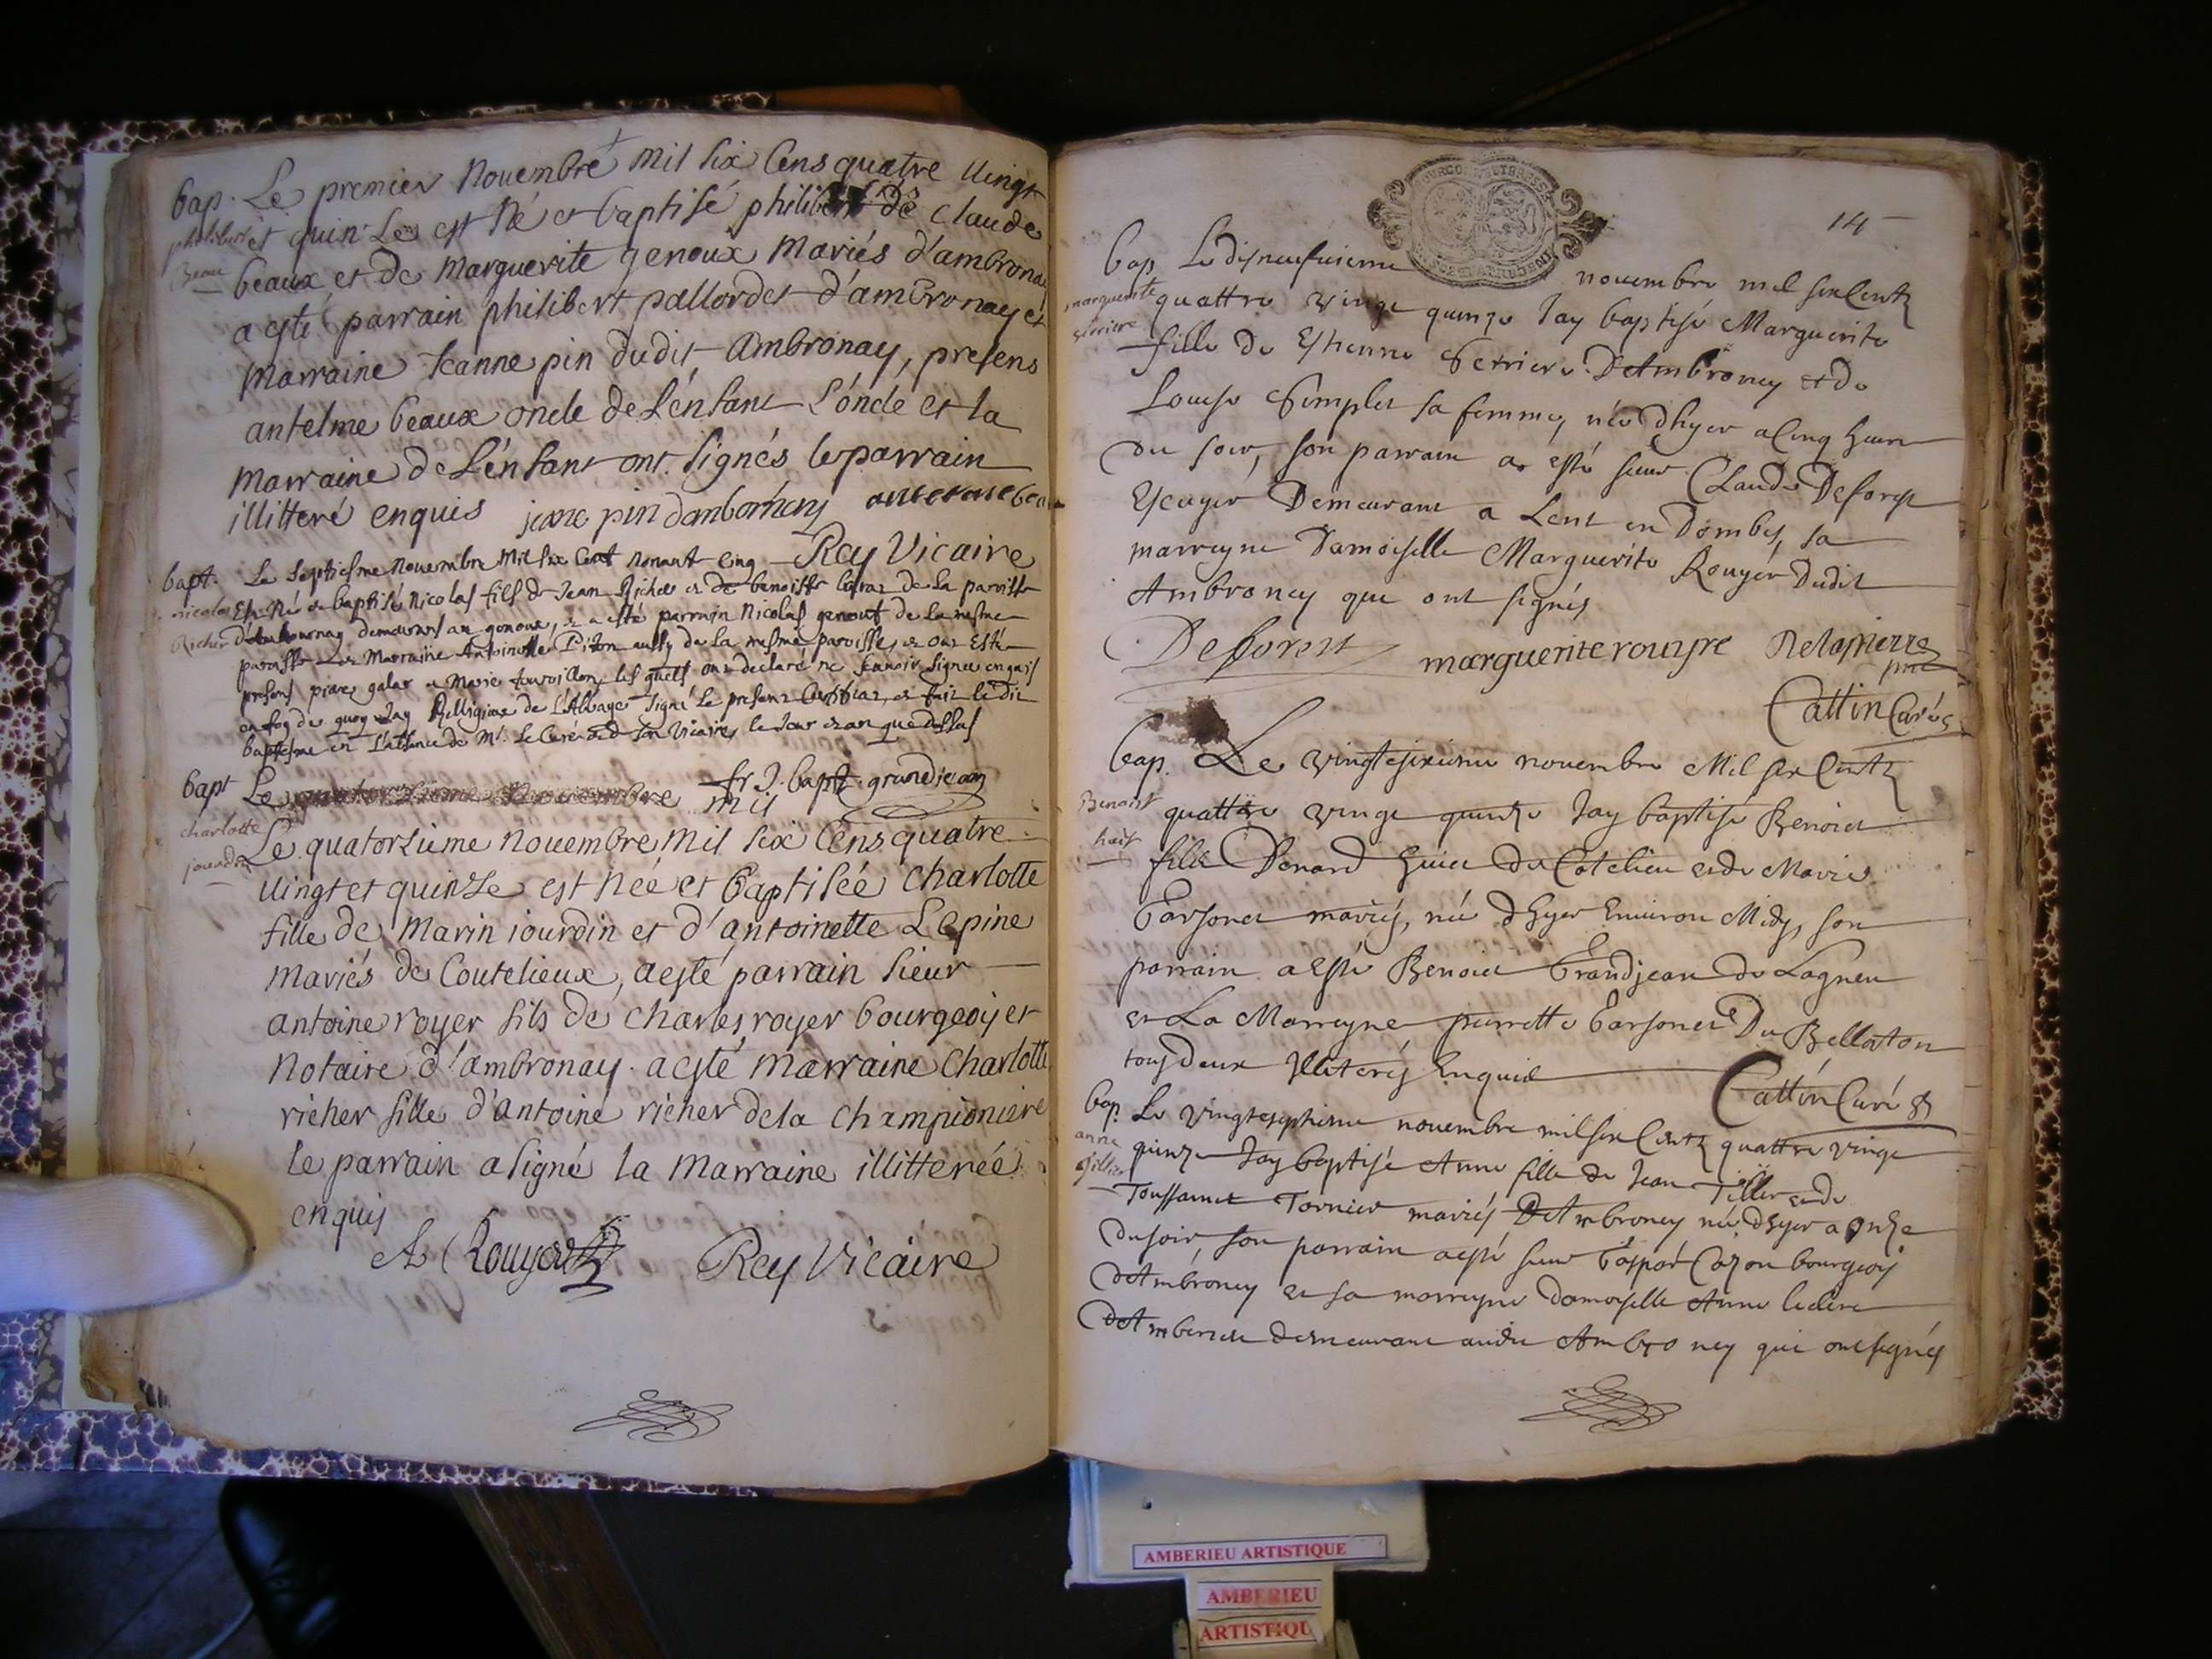 bap. Le premier Novembre mil six Cens quatre Uingt
philibert et quinze est Né et baptisé philibert fils de claude
Beau beaux et de marguerite genoux Mariés d'ambronay
a esté parrain philibert pallordet d'ambronay et
marraine Jeanne pin dudit Ambronay, presens
antelme beaux oncle de L'énfant L'óncle et la
marraine de L'énfant ont signés le parrain
illitteré enquis jeane pin danbornay antelme beau
Rey Vicaire
bapt. Le septiesme Nouembre Mil six Cent nonant cinq
nicolas Est Né et baptisé Nicolas fils de Jean Richer et de benoiste de La paroisse
Richer d'ambournay demeurans au genoux, et a esté parrain Nicolas genout de la mesme
paroisse et Marraine Antoinette Piton aussy de La mesme paroisse, et ont Esté
presens piare galar et Marie tournillon, lesquels ont declaré ne scauoir signer enquis
en foy de quoy Jay Relligieux de L'Abbaye signé Le present et fait le dit
baptesme en L'absence de Mr. Le Curé et de son Vicaire, le Jour et an que dessus
fr J. bapt. grandjean
bapt Le quatorzieme Novembre mil
charlotte Le quatorzieme Novembre mil six Cens quatre
jourdin Uingt et quinze est Née et baptisée charlotte
fille de Marin iourdin et d'antoinette Lepine
mariés de Coutelieux, a esté parrain sieur
antoine royer fils de charles royer bourgeois et
Notaire d'ambronay. a esté marraine Charlotte
richer fille d'antoine richer de la championiere
le parrain a signé la marraine illitterée
enquis
A Rouyer Rey Vicaire
14
bap Le disneufuieme novembre mil six Centz
marguerite quattre vingt quinze Jay baptisé Marguerite
fille de Estienne DAmbronay et de
Louyse Simplet sa femme, née dhyer a Cinq heure
du soir, son parrain a esté sieur Claude Deforest
Escuyer Demeurant a Lent en Dombes, sa
marreyne Damoiselle Marguerite Rouyer dudit
Ambronay qui ont signés
Deforest marguerite rouyre Delapierre
Cattin Curé
bap. Le vingtesixieme novembre Mil six Centz
Benoist quattre vingt quinze Jay baptisé Benoist
fille Huict de Cotelieu et de Marie
mariés, née dhyer Enuiron Midy, son
parrain a esté Benoist Grandjean de Lagneu
et La Marreyne pierrette Du Bellaton
tous deux Illiterés Enquis
Cattin Curé
bap. Le vingteseptieme novembre mil six Centz quattre vingt
anne quinze Jay baptisé Anne fille de Jean Tillier et de
Toussainte Tornier mariés DAmbronay née dhyer a onze
du soir, son parrain a esté sieur Gaspar Cozon bourgeois
dAmbronay et sa marreyne damoiselle Anne leclerc
dAmberieu demeurant audit Ambronay qui ont signés
AMBERIEU ARTISTIQUE
AMBERIEU
ARTISTIQU